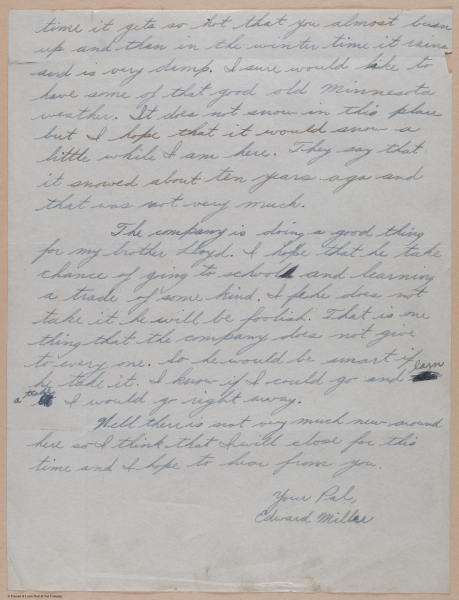 time it gets so hot that you almost burn
up and than in the winter time it rains
and is very damp. I sure would like to
have some of that good old Minnesota
weather. It does not snow in this place
but I hope that it would snow a
little while I am here. They say that
it snowed about ten years ago and
that was not very much.
The company is doing a good thing
for my brother Lloyd. I hope that he take
chance of going to school and learning
a trade of some kind. I he does not
take it he will be foolish. That is one
thing that the company does not give
to every one. So he would be smart if
he take it. I know if I could go and learn
a trade I would go right away.
Well there is not very much new around
here so I think that I will close for this
time and I hope to hear from you.
Your Pal,
Edward Miller